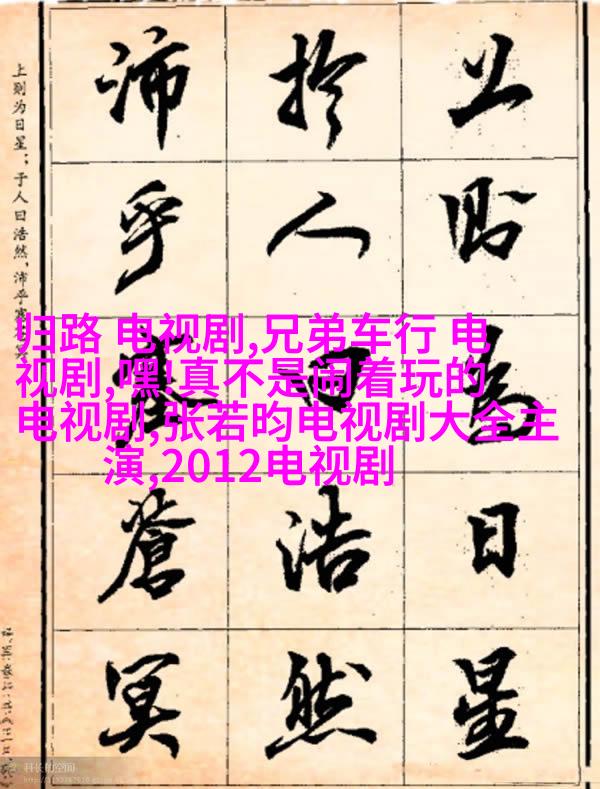 上則為日星
於人曰浩然
沛乎塞蒼冥
上则为日星；于人曰浩然，沛乎塞
归路 电视剧,兄弟车行 电
视剧,嘿!真不是闹着玩的
电视剧,张若昀电视剧大全主
演,2012电视剧
科长的空间